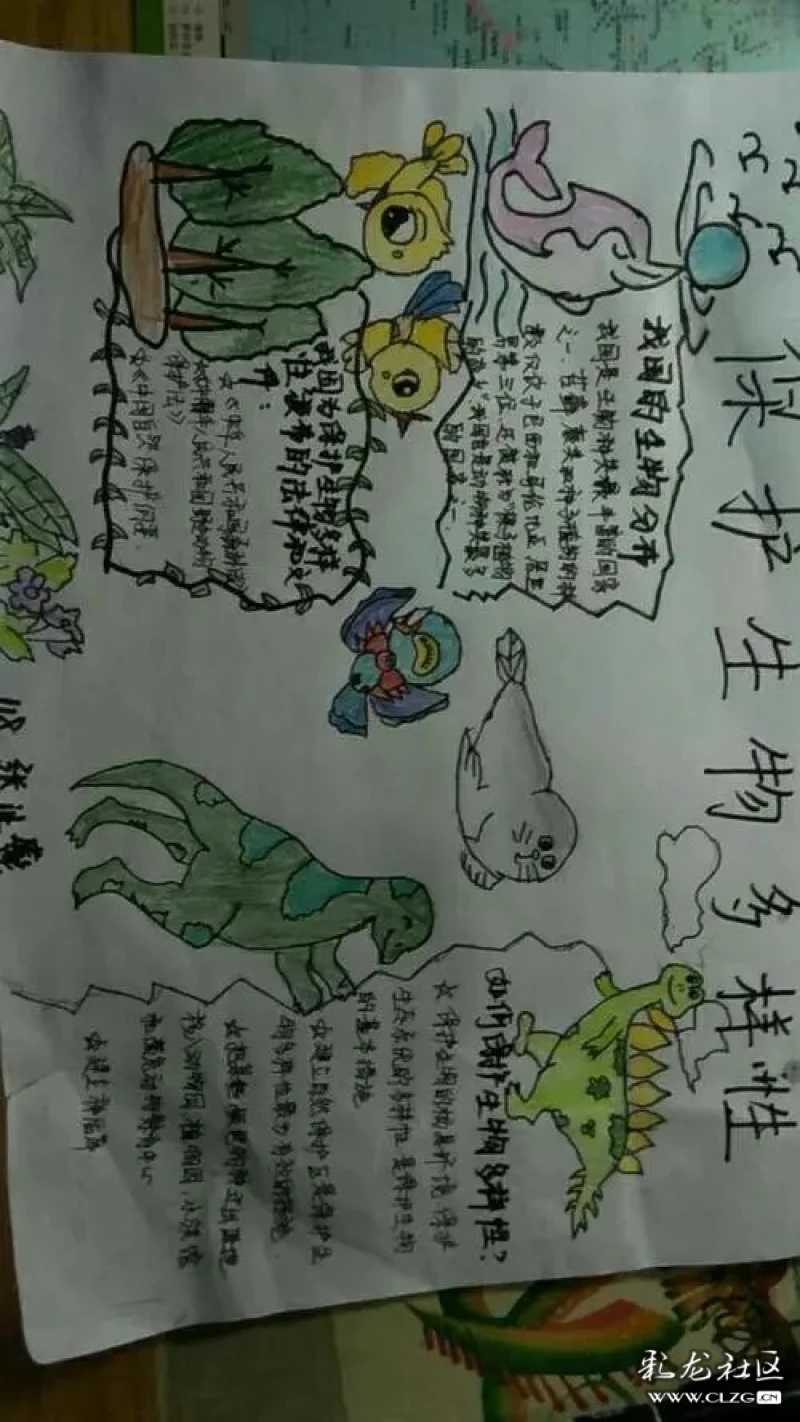 保护生物多样性
我国的生物分布
我国是生物种类最丰富的国家
之一。苔藓、蕨类和种子植物的种
数仅次于巴西和哥伦比亚,居世
界第三位,还被称为“裸子植物
的故乡”我国也是动物种类最多
的国家之一
我国为保护生物多样
性颁布的法律和文
件:
☆《中华人民共和国森林法》
☆《中华人民共和国野生动物
保护法》
☆《中国自然保护纲要》
如何保护生物多样性?
☆保护生物的栖息环境,保护
生态系统的多样性,是保护生物
的基本措施
☆建立自然保护区是保护生
物多样性最为有效的措施.
☆把某些濒危的物种迁出原地
移入动物园、植物园、水族馆
和濒危动物繁育中心
☆建立种质库
118 张
彩龙社区
WWW.CLZG.CN